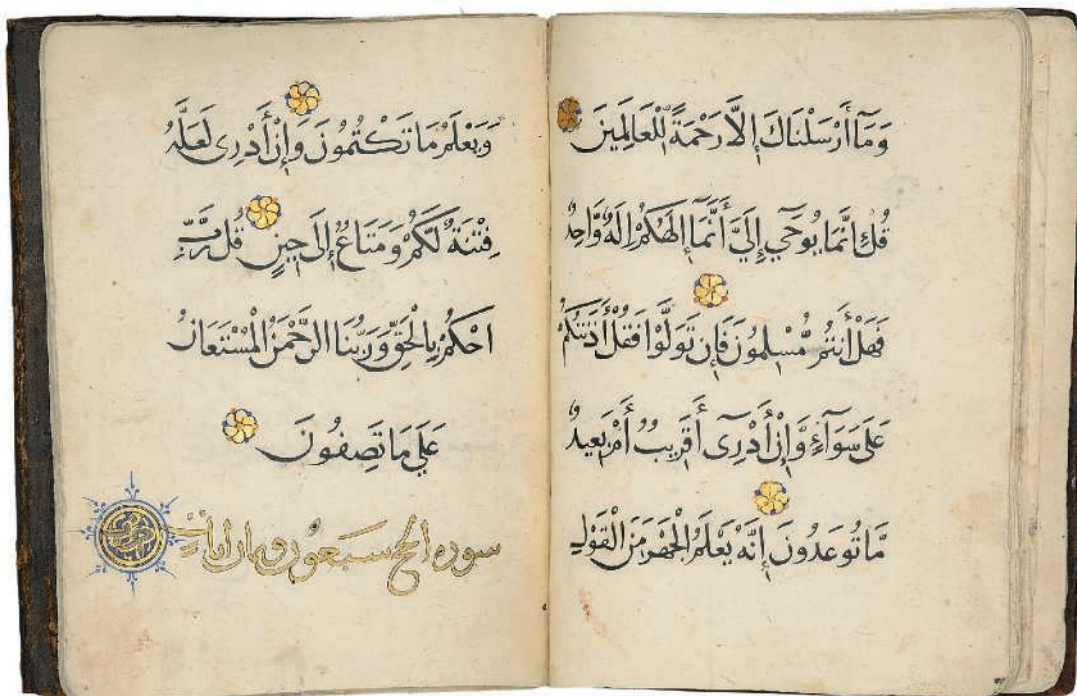 وَمَآ أَرْسَلْنَاكَ إِلَّا رَحْمَةً لِّلْعَالَمِينَ
قُلْ إِنَّمَا يُوحَىٰ إِلَيَّ أَنَّمَا إِلَٰهُكُمْ إِلَٰهٌ وَّاحِدٌ
فَهَلْ أَنتُم مُّسْلِمُونَ فَإِن تَوَلَّوْا فَقُلْ أَذَنتُكُمْ
عَلَىٰ سَوَآءٍ وَّإِنْ أَدْرِىٓ أَقَرِيبٌ أَم بَعِيدٌ
مَّا تُوعَدُونَ إِنَّهُ يَعْلَمُ الْجَهْرَ مِنَ الْقَوْلِ
وَيَعْلَمُ مَا تَكْتُمُونَ وَإِنْ أَدْرِى لَعَلَّهُ
فِتْنَةٌ لَّكُمْ وَمَتَاعٌ إِلَىٰ حِينٍ قُل رَّبِّ
احْكُمْ بِالْحَقِّ وَرَبُّنَا الرَّحْمَٰنُ الْمُسْتَعَانُ
عَلَىٰ مَا تَصِفُونَ
سورة الحج سبعون وثمان ايات